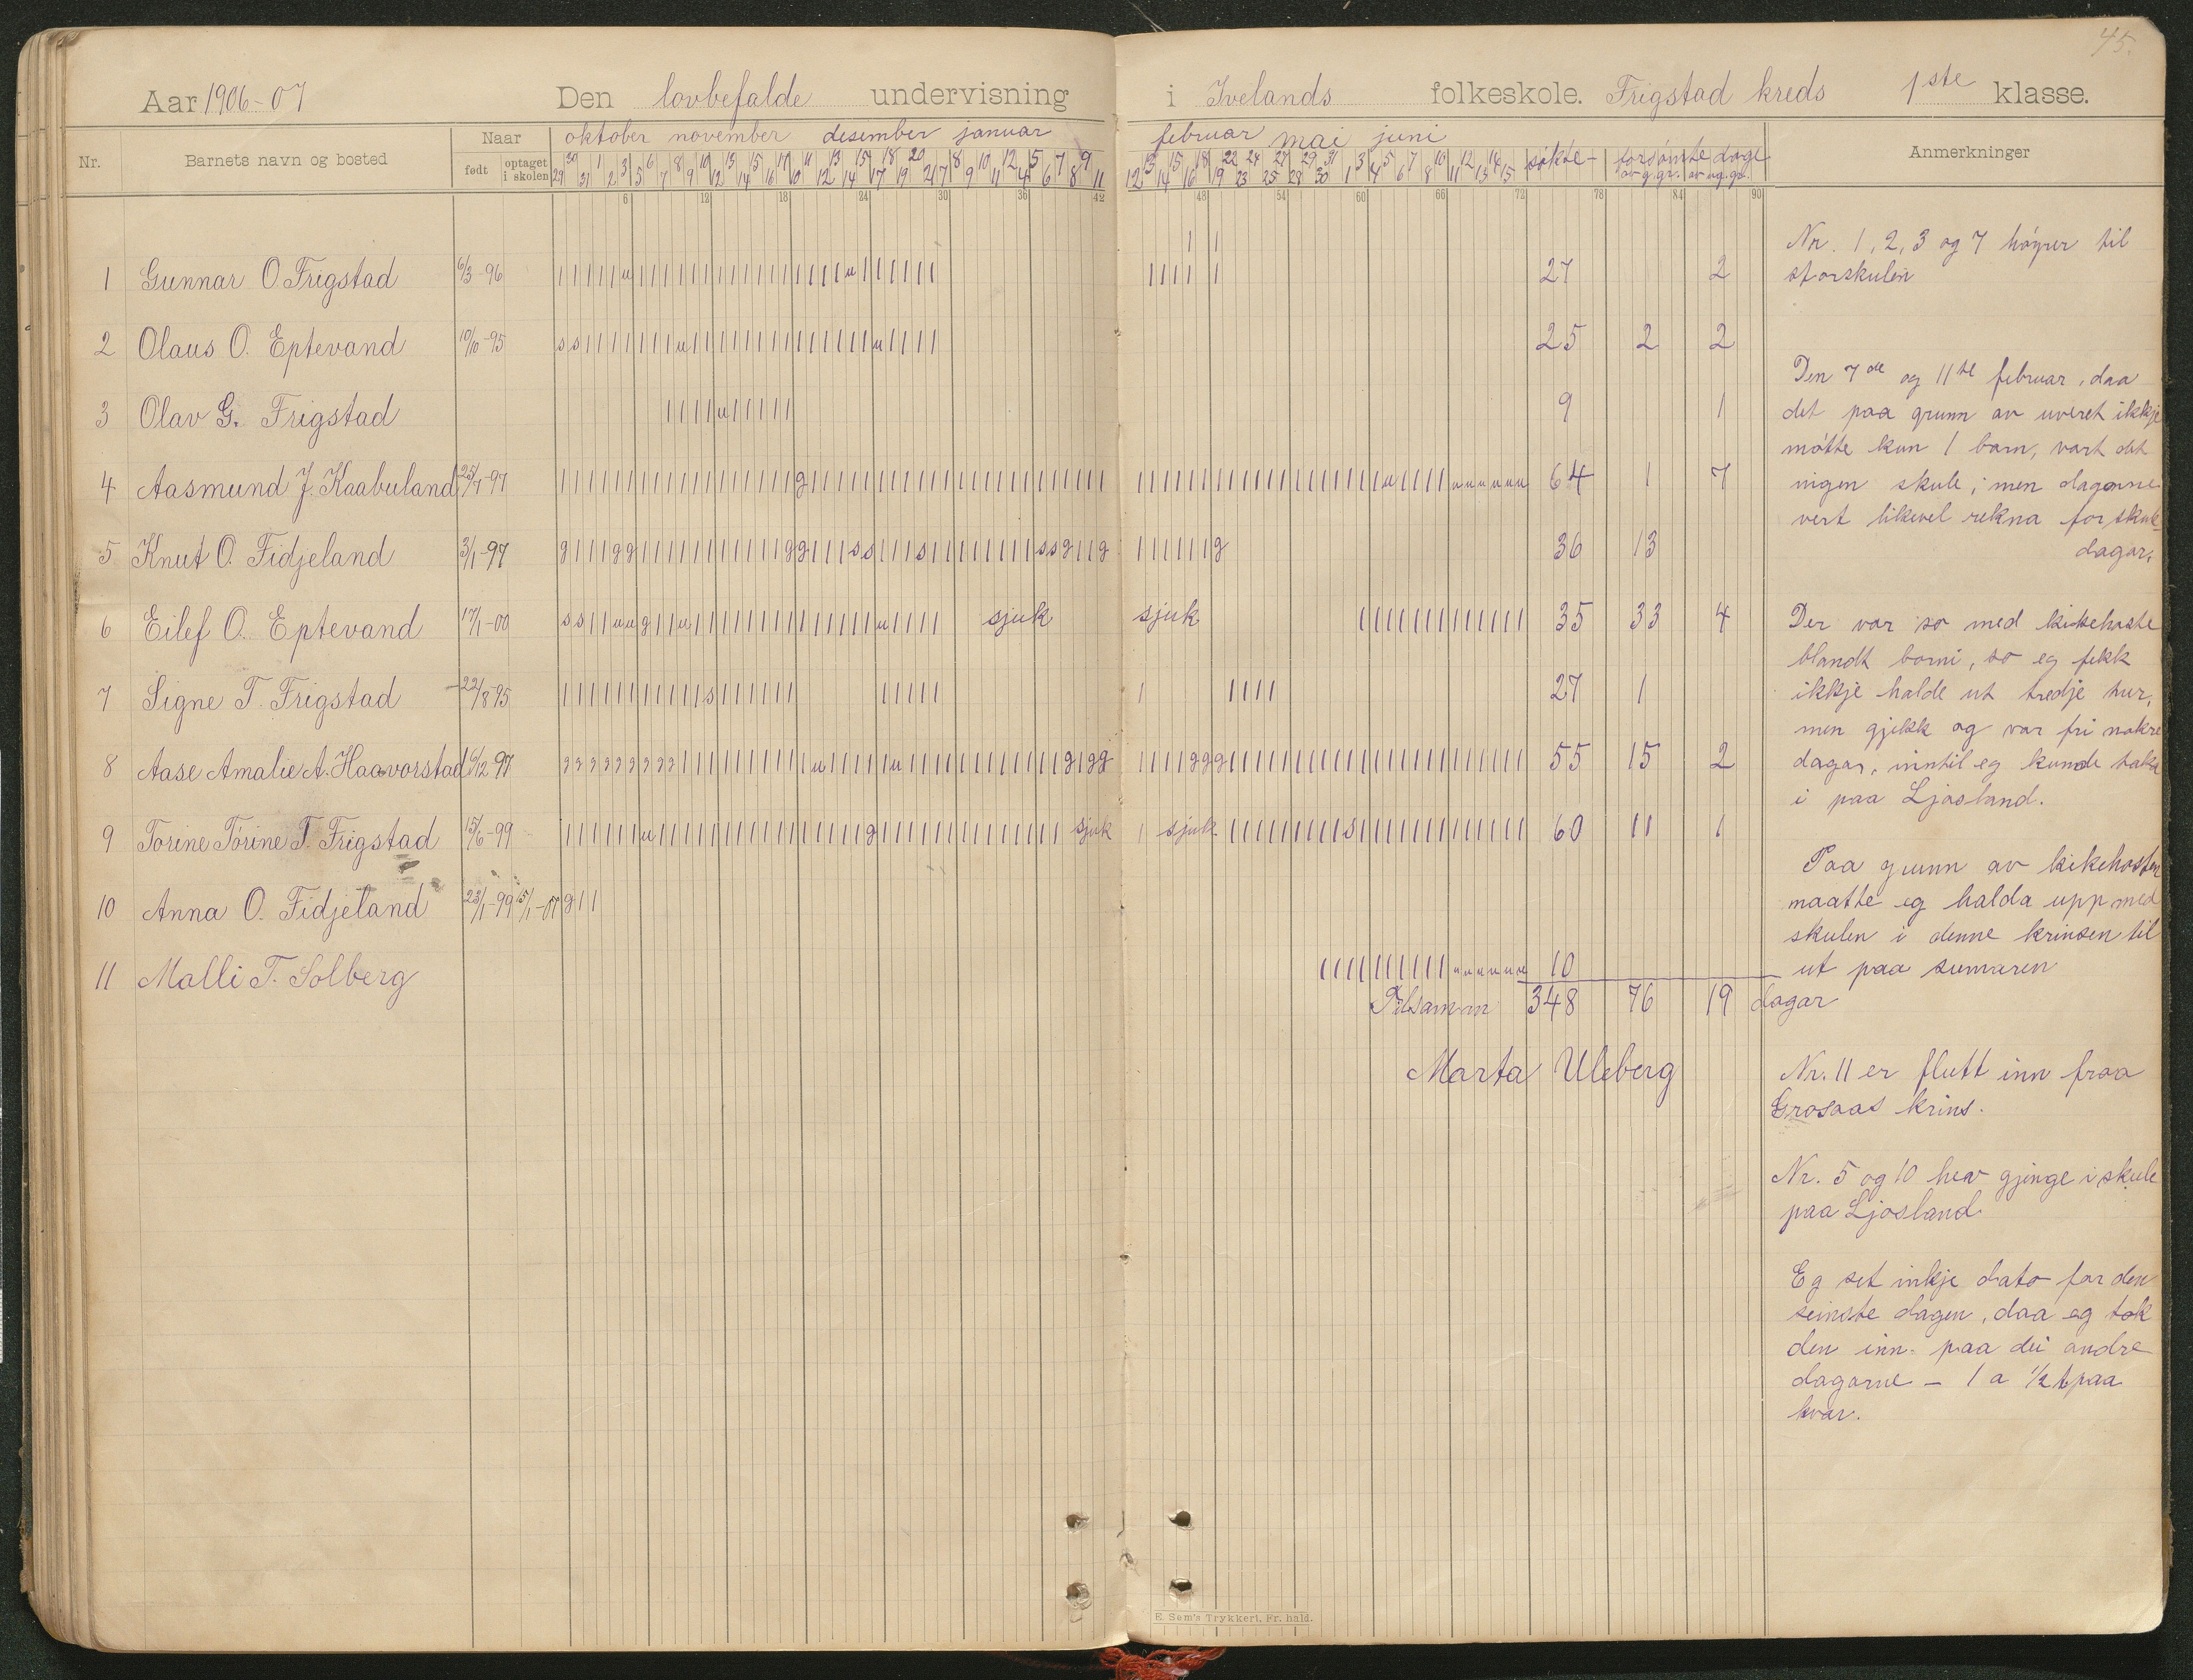 45.
Aar 1906-07 Den lovbefalde undervisning i Ivelands folkeskole. Frigstad kreds 1ste klasse.
Nr. Barnets navn og bosted Naar født optaget i skolen oktober november desember januar februar mai juni søkte forsømte dage av g.gr. av ug.gr. Anmerkninger
6 12 18 24 30 36 42 48 54 60 66 72 78 84 90
1 Gunnar O. Frigstad 6/3-96 27 2
2 Olaus O. Eptevand 10/10-95 25 2 2
3 Olav G. Frigstad 9 1
4 Aasmund J. Kaabuland 25/7-97 64 1 7
5 Knut O. Fidjeland 3/1-97 36 13
6 Eilef O. Eptevand 17/1-00 sjuk sjuk 35 33 4
7 Signe T. Frigstad 22/8-95 27 1
8 Aase Amalie A. Haavorstad 6/12 97 55 15 2
9 Torine Tørine T. Frigstad 15/6-99 sjuk sjuk 60 11 1
10 Anna O. Fidjeland 23/1-99 15/1-07 g 1 1
11 Malli T. Solberg 10
Tilsamm 348 76 19 dagar
Marta Uleberg
Nr. 1, 2, 3 og 7 høyrer til
storskulen
Den 7de og 11te februar, daa
det paa grunn av uveret ikkje
møtte kun 1 barn, vart det
ingen skule; men dagarne
vert likevel rekna for skule
dagar.
Der var so med kikehoste
blandt borni, so eg fekk
ikkje halde ut tredje tur,
men gjekk og var fri nokre
dagar, inntil eg kunde taka
i paa Ljosland.
Paa grunn av kikehosten
maatte eg halda upp med
skulen i denne krinsen til
ut paa sumaren
Nr. 11 er flutt inn fraa
Grosaas krins.
Nr. 5 og 10 hev gjinge i skule
paa Ljosland
Eg set inkje dato for den
seinste dagen, daa eg tok
den inn paa dei andre
dagarne - 1 a 1/2 t paa
kvar.
E. Sem's Trykkeri, Fr. hald.